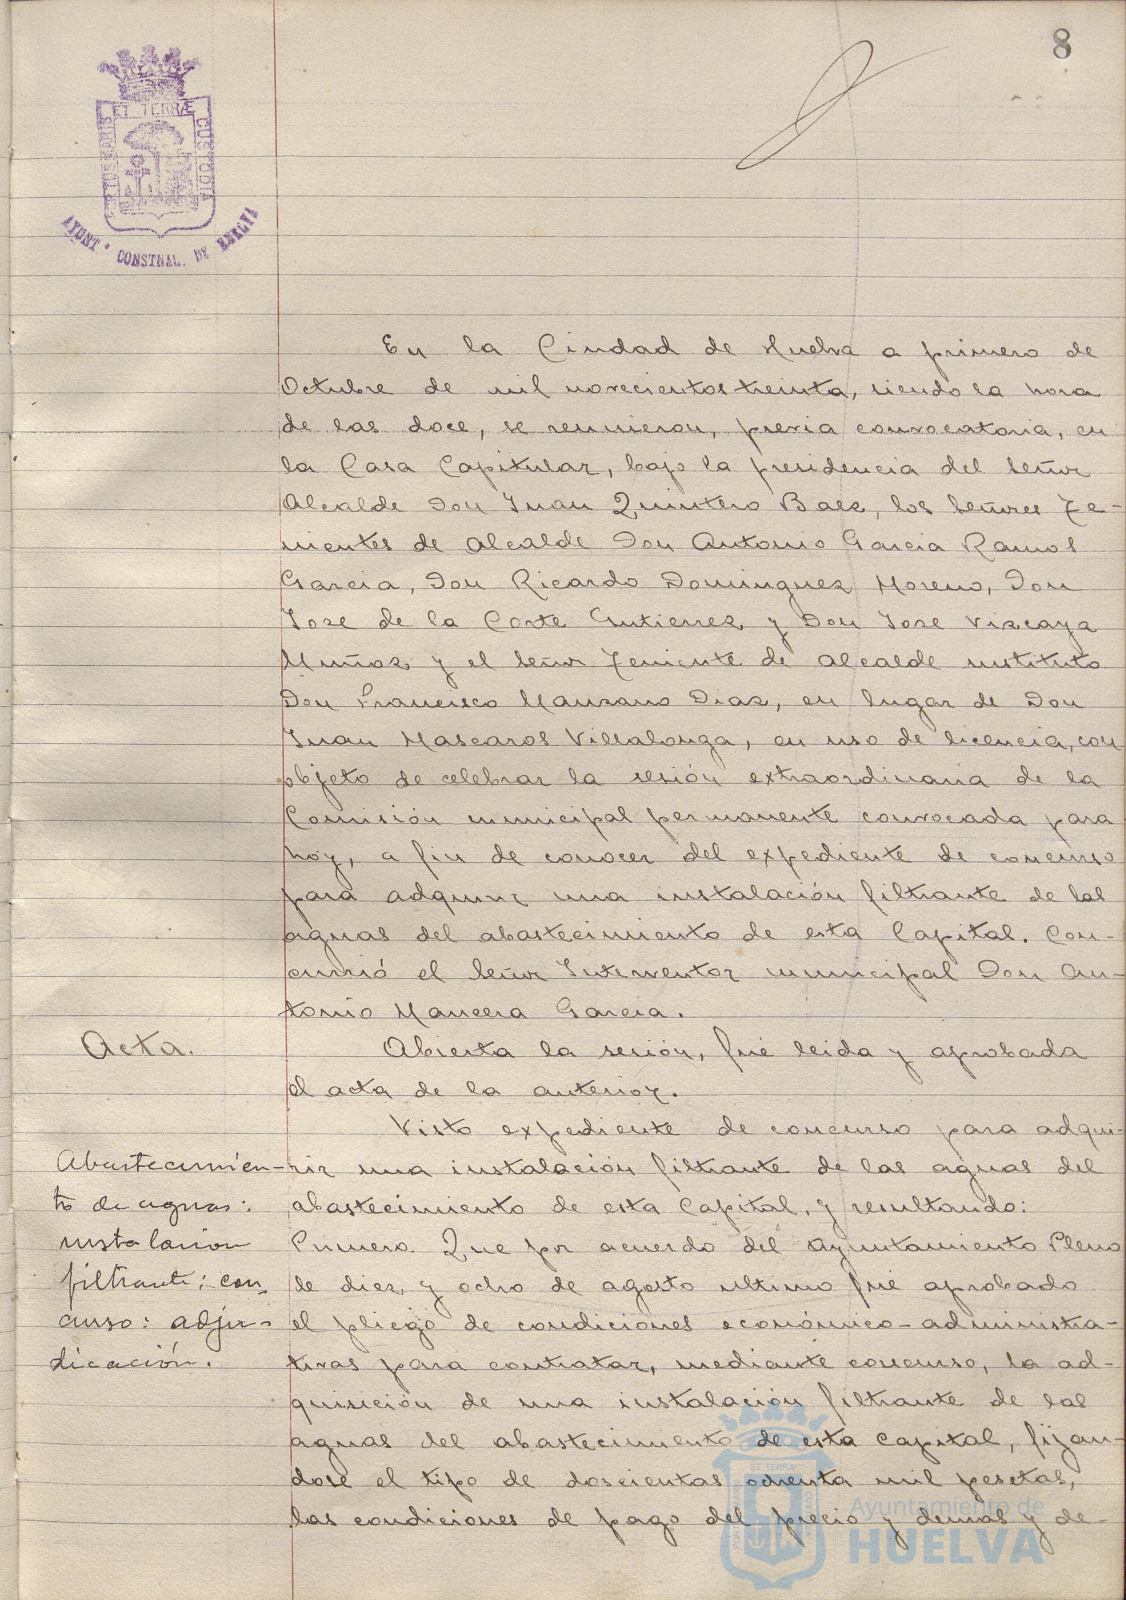 8
ET TERRÆ
CUSTODIA
AYUNT. CONSTNAL. DE HUELVA
En la Ciudad de Huelva a primero de
Octubre de mil novecientos treinta, siendo la hora
de las doce, se reunieron, previa convocatoria, en
la Casa Capitular, bajo la presidencia del Señor
Alcalde Don Juan Quintero Baez, los Señores Te-
nientes de Alcalde Don Antonio Garcia Ramos
Garcia, Don Ricardo Dominguez Moreno, Don
Jose de la Corte Gutierrez y Don Jose Vizcaya
Muñoz y el Señor Teniente de Alcalde sustituto
Don Francisco Manzano Diaz, en lugar de Don
Juan Mascaros Villalonga, en uso de licencia, con
objeto de celebrar la sesión extraordinaria de la
Comisión municipal permanente convocada para
hoy, a fin de conocer del expediente de concurso
para adquirir una instalación filtrante de las
aguas del abastecimiento de esta Capital. Con-
currió el Señor Interventor municipal Don An-
tonio Mancera Garcia.
Acta.
Abierta la sesión, fué leida y aprobada
el acta de la anterior.
Abastecimien-
to de aguas:
instalacion
filtrante: con-
curso: adju-
dicación.
Visto expediente de concurso para adqui-
rir una instalación filtrante de las aguas del
abastecimiento de esta Capital, y resultando:
Primero. Que por acuerdo del Ayuntamiento Pleno
de diez y ocho de agosto ultimo fué aprobado
el pliego de condiciones económico-administra-
tivas para contratar, mediante concurso, la ad-
quisición de una instalación filtrante de las
aguas del abastecimiento de esta Capital, fijan-
dose el tipo de doscientas ochenta mil pesetas,
las condiciones de pago del precio y demas y de-
Ayuntamiento de
HUELVA